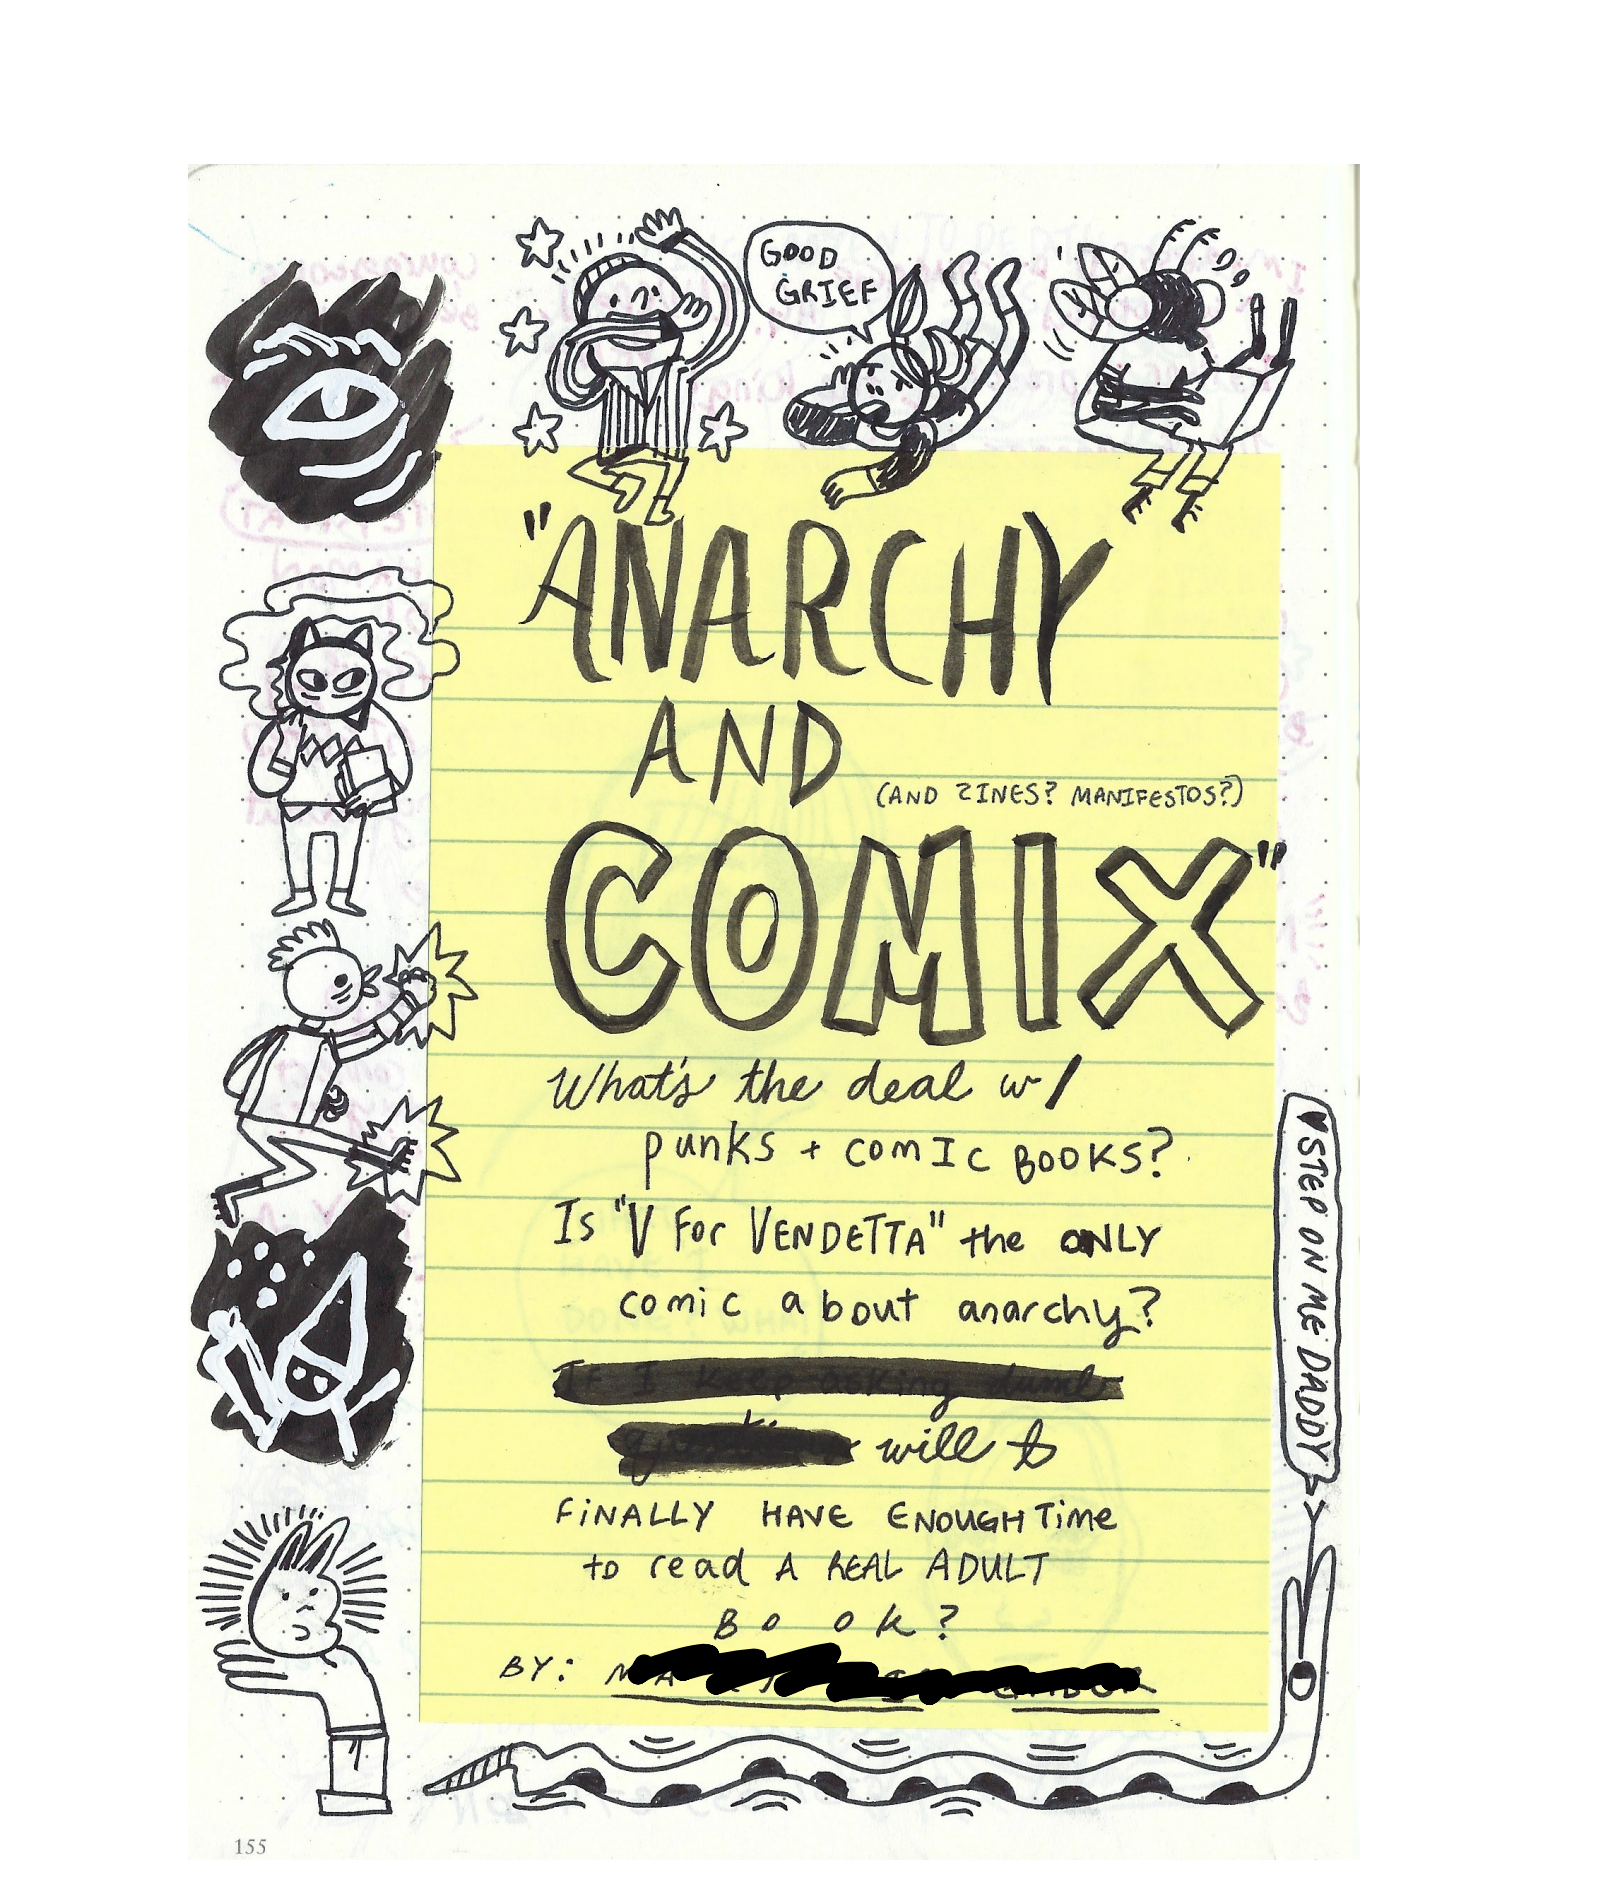 GOOD
GRIEF
"ANARCHY
AND
(AND ZINES? MANIFESTOS?)
COMIX"
What's the deal w/
punks + comIc BOOKS?
Is "V For VENDETTA" the ONLY
comic about anarchy?
If I keep asking dumb
will
FINALLY HAVE ENOUGH TIme
to read A REAL ADULT
BooK?
BY:
♥STEP ON ME DADDY
155